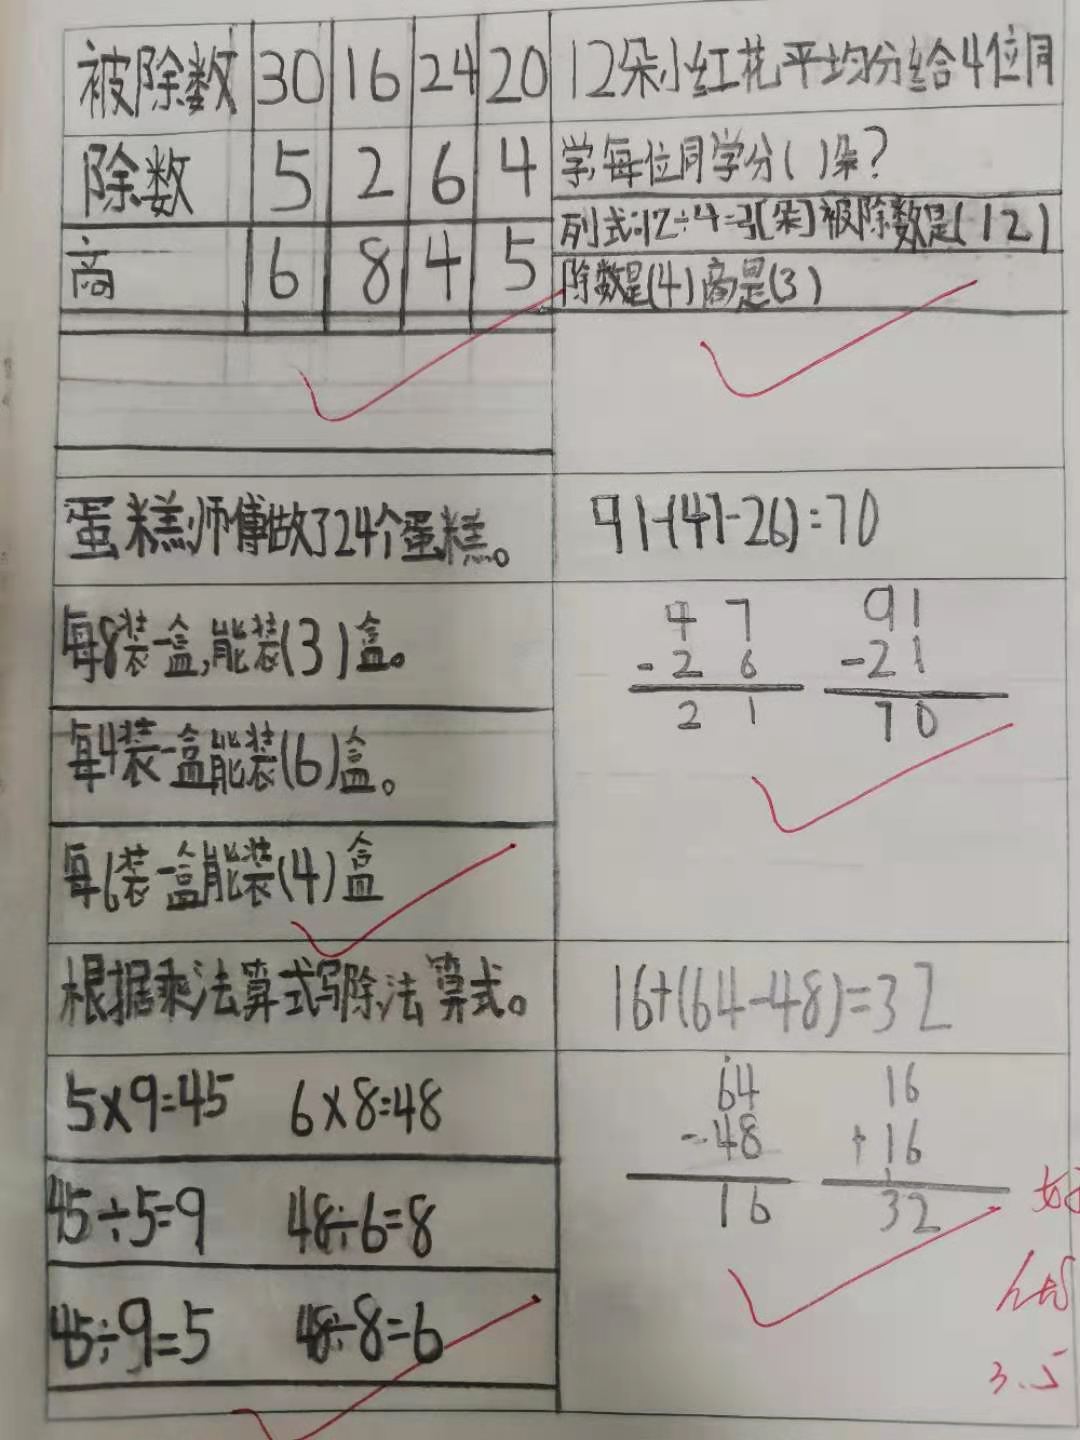 被除数 30 16 24 20
除数 5 2 6 4
商 6 8 4 5
12朵小红花平均分给4位同
学,每位同学分( )朵?
列式:12÷4=3[朵]被除数是(12)
除数是(4)商是(3)
蛋糕师傅做了24个蛋糕。
每8装一盒,能装(3)盒。
每4装一盒能装(6)盒。
每6装一盒能装(4)盒
91-(47-26)=70
47 91
-26 -21
21 70
根据乘法算式写除法算式。
5×9=45 6×8=48
45÷5=9 48÷6=8
45÷9=5 48÷8=6
16+(64-48)=32
64 16
-48 +16
16 32
好
3.5